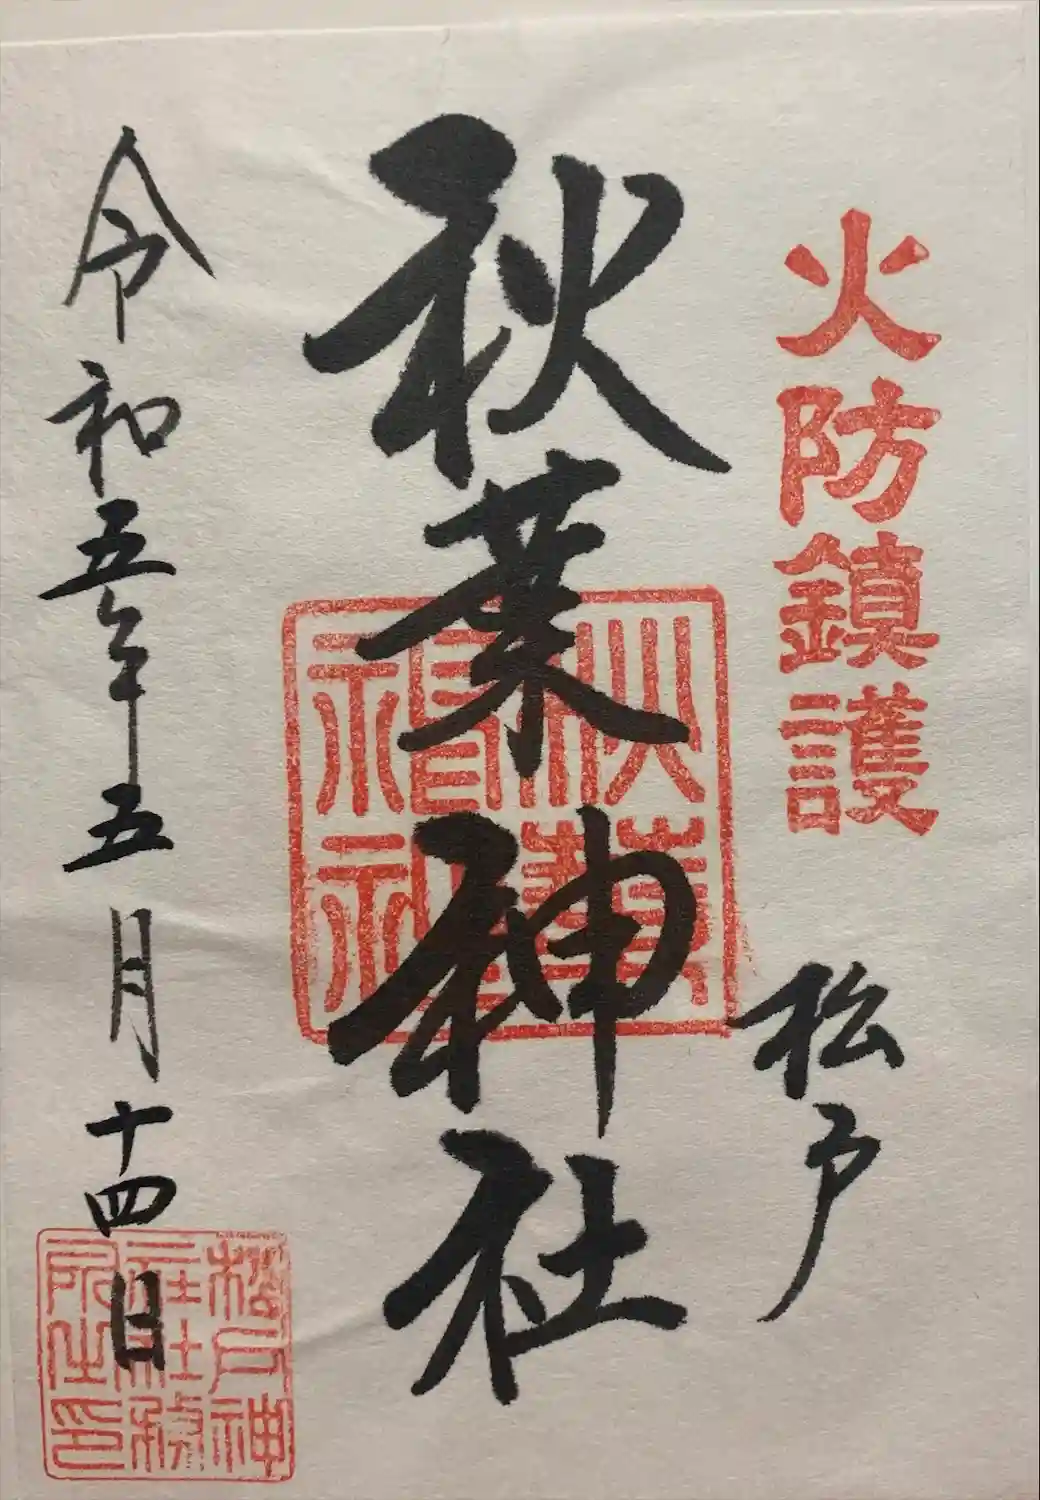 火防鎮護
松戸
秋葉神社
秋葉神社
令和五年五月十四日
松戸神社社務所之印